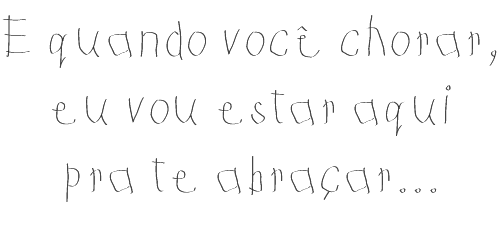 E quando você chorar,
eu vou estar aqui
pra te abraçar...